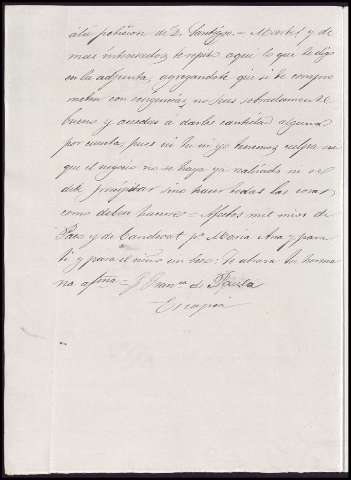 á tu petición de D. Santiago = Martel y de
mas interesados te repito aquí lo que te digo
en la adjunta, agregandote que si te compro
meten con exigencias no seas sobradamente
bueno y accedas á darles cantidad alguna
por cuenta, pues ni tu ni yo tenemos culpa en
que el negocio no se haya ya realizado ni se
debe precipitar sino hacer todas las cosas
como deben hacerse = Afectos mil mios de
Paz y de para Maria Ana y para
ti y para el niño un beso: te abraza tu herma
no afmo = J Franco de Pausa
Es copia